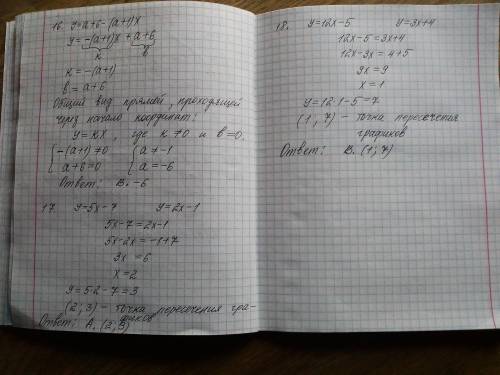 16. y=a+6-(a+1)x
y=-(a+1)x+a+6
к в
к=-(a+1)
в=a+6
Общий вид прямой, проходящей
через начало координат:
y=кx, где к≠0 и в=0.
{-(a+1)≠0 {a≠-1
a+6=0 a=-6
Ответ: В. -6
17. y=5x-7 y=2x-1
5x-7=2x-1
5x-2x=-1+7
3x=6
x=2
y=5·2-7=3
(2;3) - точка пересечения гра-
фиков
Ответ: А. (2;3)
18. y=12x-5 y=3x+4
12x-5=3x+4
12x-3x=4+5
9x=9
x=1
y=12·1-5=7
(1;7) - точка пересечения
графиков
Ответ: В. (1;7)